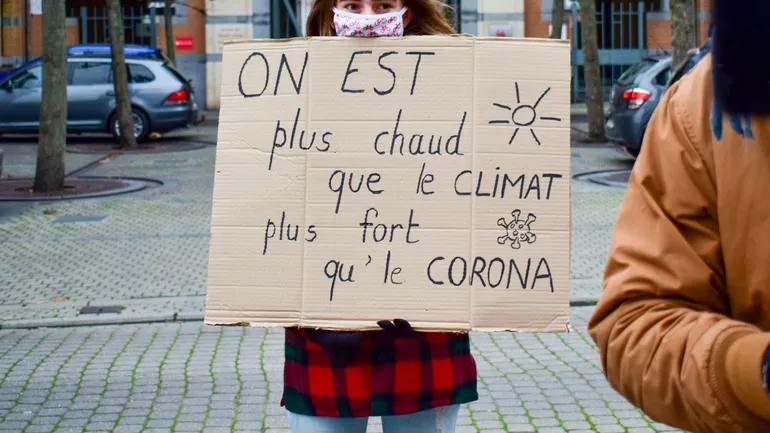 ON EST
plus chaud
que le CLIMAT
plus fort
qu'le CORONA